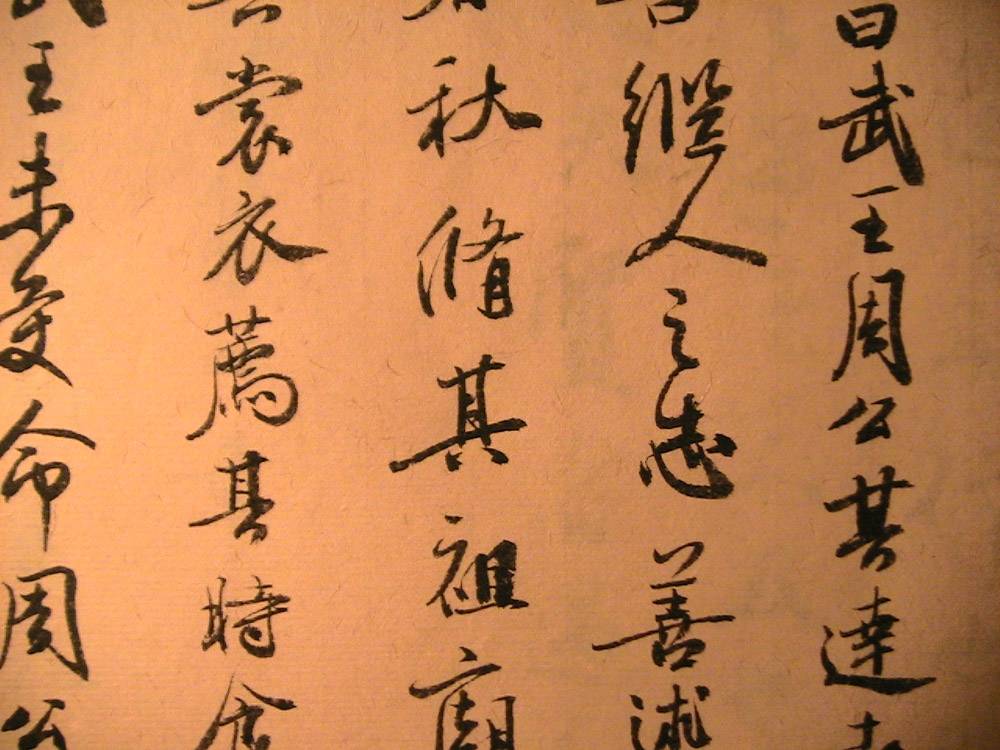 曰武王周公其達孝
善繼人之志善述
春秋脩其祖廟
其裳衣薦其時食
武王未受命周公